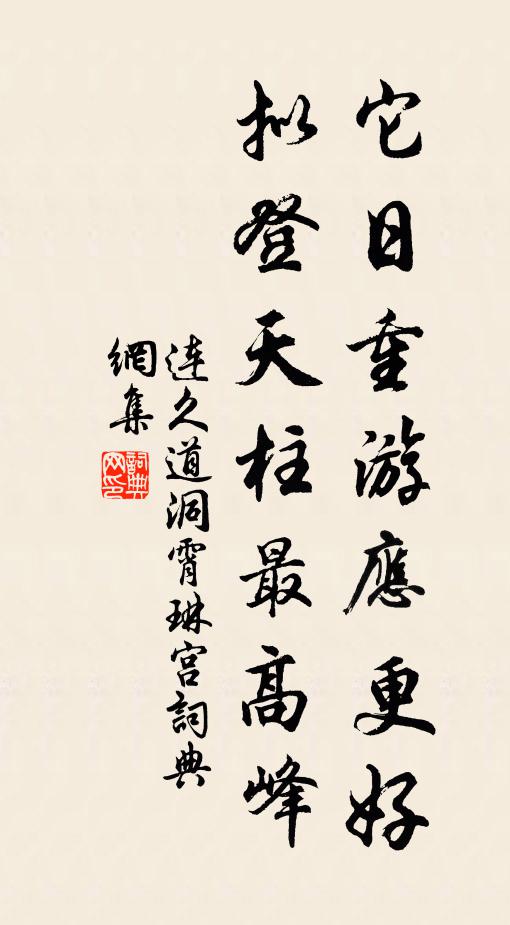 它日重游應更好
拟登天柱最高峰
连久道洞霄琳宫詞典
網集
詞典
网印